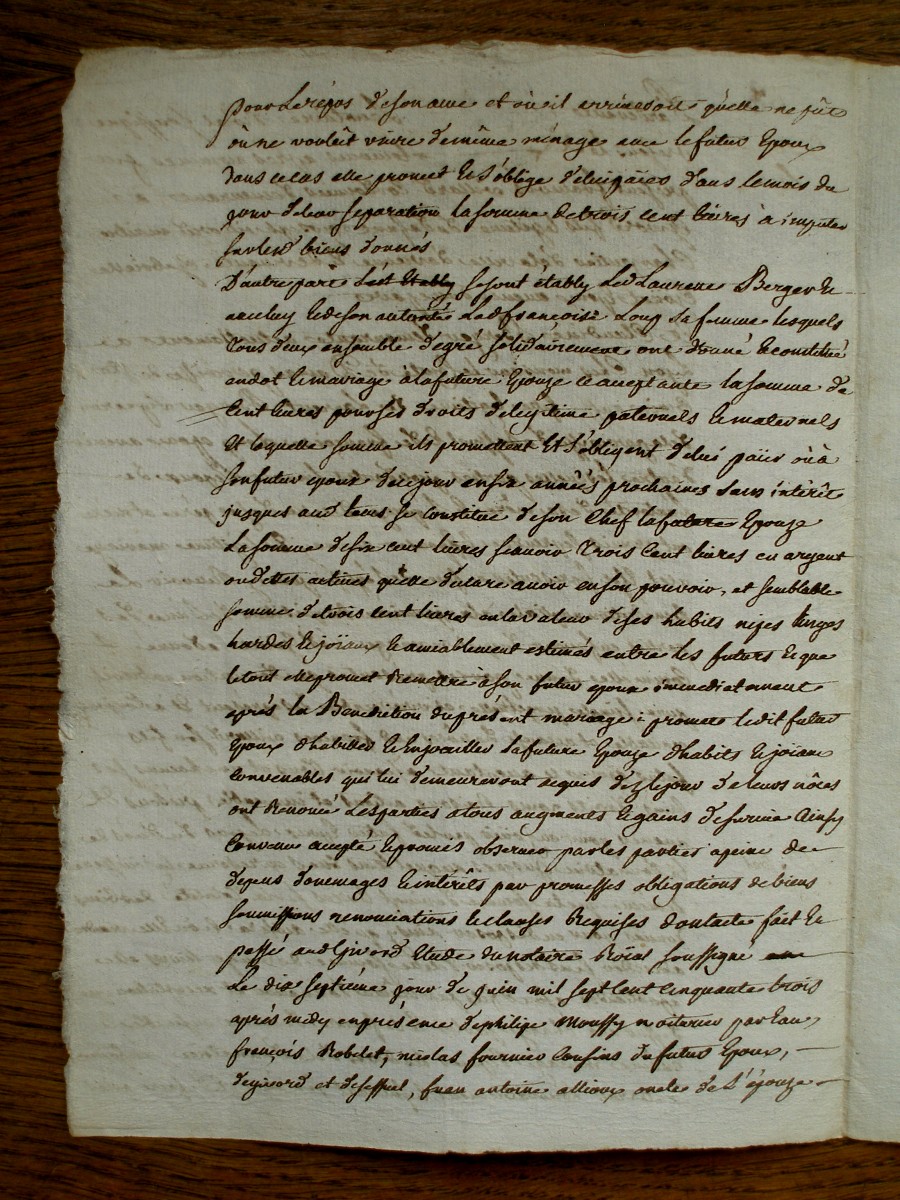 pour le répos de son ame et où il arriveroit quelle ne pût
où ne voulût vivre de même ménage avec le futur Epoux
dans ce cas elle promet et s'oblige de lui païer dans le mois du
jour de leur separation la somme de trois cent livres à imputer
sur lesd biens donnés
D'autre part s'est Etably se sont établÿ Led Laurent Berger et
de luy et de son autorité Lad françoise Loup sa femme lesquels
tous deux ensemble de gré solidairement ont donné et constitué
en dot et mariage à la future Epouze ce acceptante la somme de
cent livres pour ses droits de legitime paternels et maternels
Et laquelle somme ils promettent Et s'obligent de lui païer où à
son futur epoux de ce jour en six années prochaines sans intérêt
jusques aud tems se constitue de son Chef la future Epouze
La somme de six cent livres scavoir trois Cent livres en argent
ou dettes actives quelle declare avoir en son pouvoir, et semblable
somme de trois cent livres en la valeur de ses habits nipes linges
hardes et joïaux et amiablement estimés entre les futurs et que
le tout elle promet Remettre à son futur epoux immediatement
après la Bénédiction du présent mariage; promet ledit futur
Epoux d'habiller et Enjoailler sa future Epouze d'habits et joïaux
Convenables qui lui demeureront acquis dez le jour de leurs nôces
ont Renoncé Les parties a tous augments et gains de survie Ainsy
Convenu accepté et promis observer par les parties a peine de
depens dommages et intérêts par promesses obligations de biens
soumissions renonciations et clauses Requises dont acte fait et
passé aud Givord Etude du notaire Roïal soussigné
Le dix septiéme jour de juin mil sept Cent cinquante trois
après midy en présence de philipe Moussy voiturier par Eau,
françois Robelet, nicolas fournier Cousins du futur Epoux,
de givord et de seissuel, jean antoine allioux oncle de L'épouze